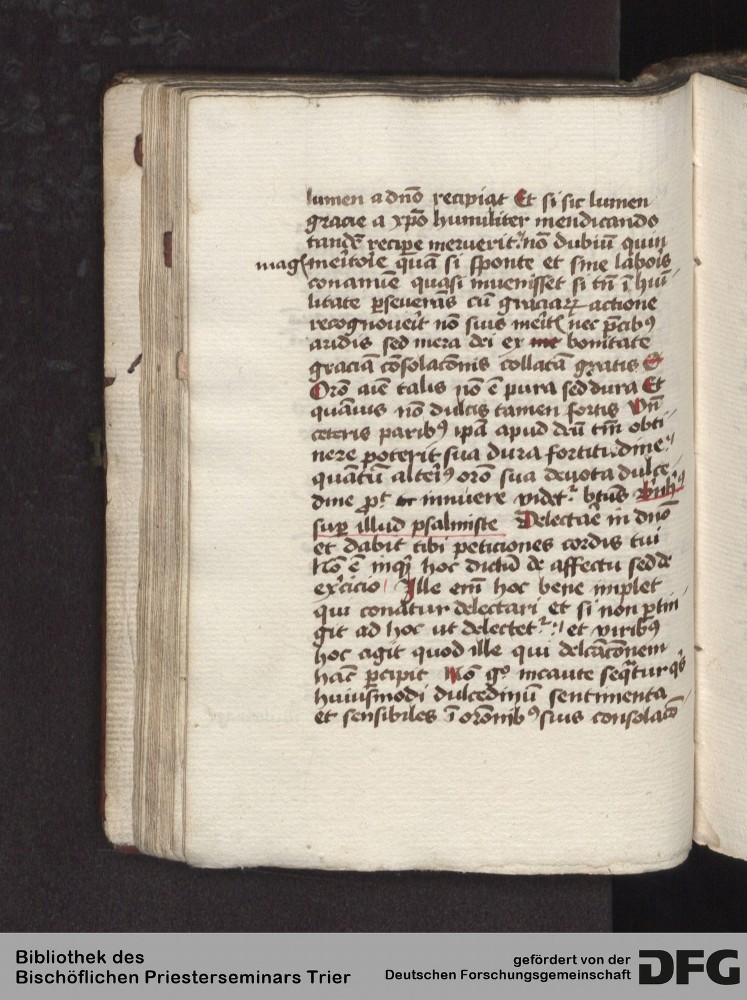 lumen a dnō recipiat Et si sic lumen
gracie a xp̄o humiliter mendicando
tandē recipe meruerit nō dubiū quin
mag̃ meritorie quā si sponte et sine laboris
conamīe quasi invenisset si tn̄ ī hūi
litate perseverās cū graciaꝝ actione
recognoverit nō suis merit nec p̄cibꝰ
aridis sed mera dei ex bonitate
graciā cōsolacōnis collatā gratis
Orō aūt talis nō ē pura sed dura Et
quāvis nō dulcis tamen fortis Vn̄
ceteris paribꝰ ipā apud deū tm̄ obti
nere poterit sua dura fortitudine
quātū alteriꝰ orō sua devota dulce
dine pt̄ innuere videt btūs
sup illud psalmiste Delectare in dnō
et dabit tibi peticiones cordis tui
Nō ē inqt hoc dictū de affectu sed de
exercicio Ille enī hoc bene implet
qui conatur delectari et si non ptin
git ad hoc ut delectet et viribꝰ
hoc agit quod ille qui delcācōnem
hāc percipit Nō gͦ incaute seqatur qͥs
huiusmodi dulcedinū sentimenta
et sensibiles ī orōnibꝰ suis consolacō
Bibliothek des
Bischöflichen Priesterseminars Trier
gefördert von der
Deutschen Forschungsgemeinschaft
DFG